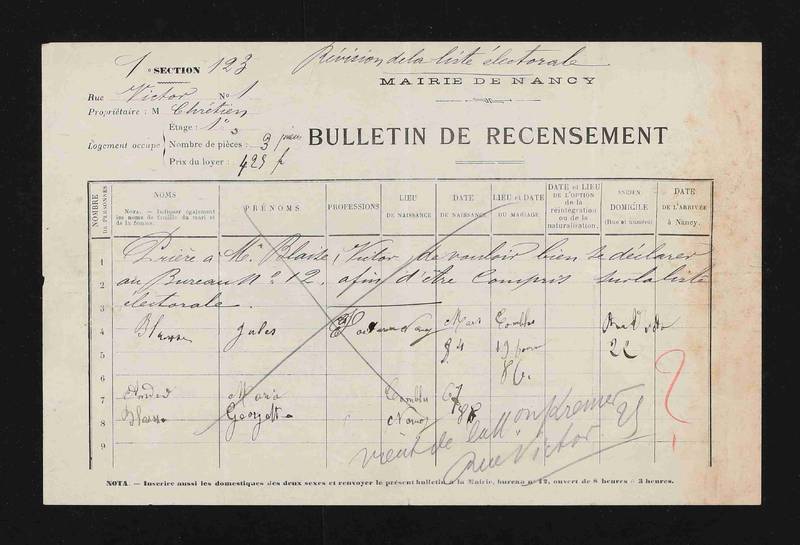 1e SECTION 123
Révision de la liste électorale
MAIRIE DE NANCY
Rue Victor No 1
Propriétaire : M Chrétien
Étage : 1er
Logement occupé
Nombre de pièces : 3
Prix du loyer : 425 f
BULLETIN DE RECENSEMENT
NOMBRE DE PERSONNES
NOMS
Nota. — Indiquer également les noms de famille du mari et de la femme.
PRÉNOMS
PROFESSIONS
LIEU DE NAISSANCE
DATE DE NAISSANCE
LIEU et DATE DU MARIAGE
DATE et LIEU DE L'OPTION de la réintégration ou de la naturalisation.
ANCIEN DOMICILE (Rue et numéro)
DATE DE L'ARRIVÉE à Nancy.
1 Prière à Mr Blaise, Victor de vouloir bien se déclarer
2 au Bureau No 12. afin d'être Compris sur la liste
3 électorale.
4 Jules Nancy Mars
5 84 19 22
6 86.
7 Marie 67
8 Georgette Nancy 88
9
vient de la Mon Kremer
Rue Victor 25
NOTA. — Inscrire aussi les domestiques des deux sexes et renvoyer le présent bulletin à la Mairie, bureau no 12, ouvert de 8 heures à 3 heures.